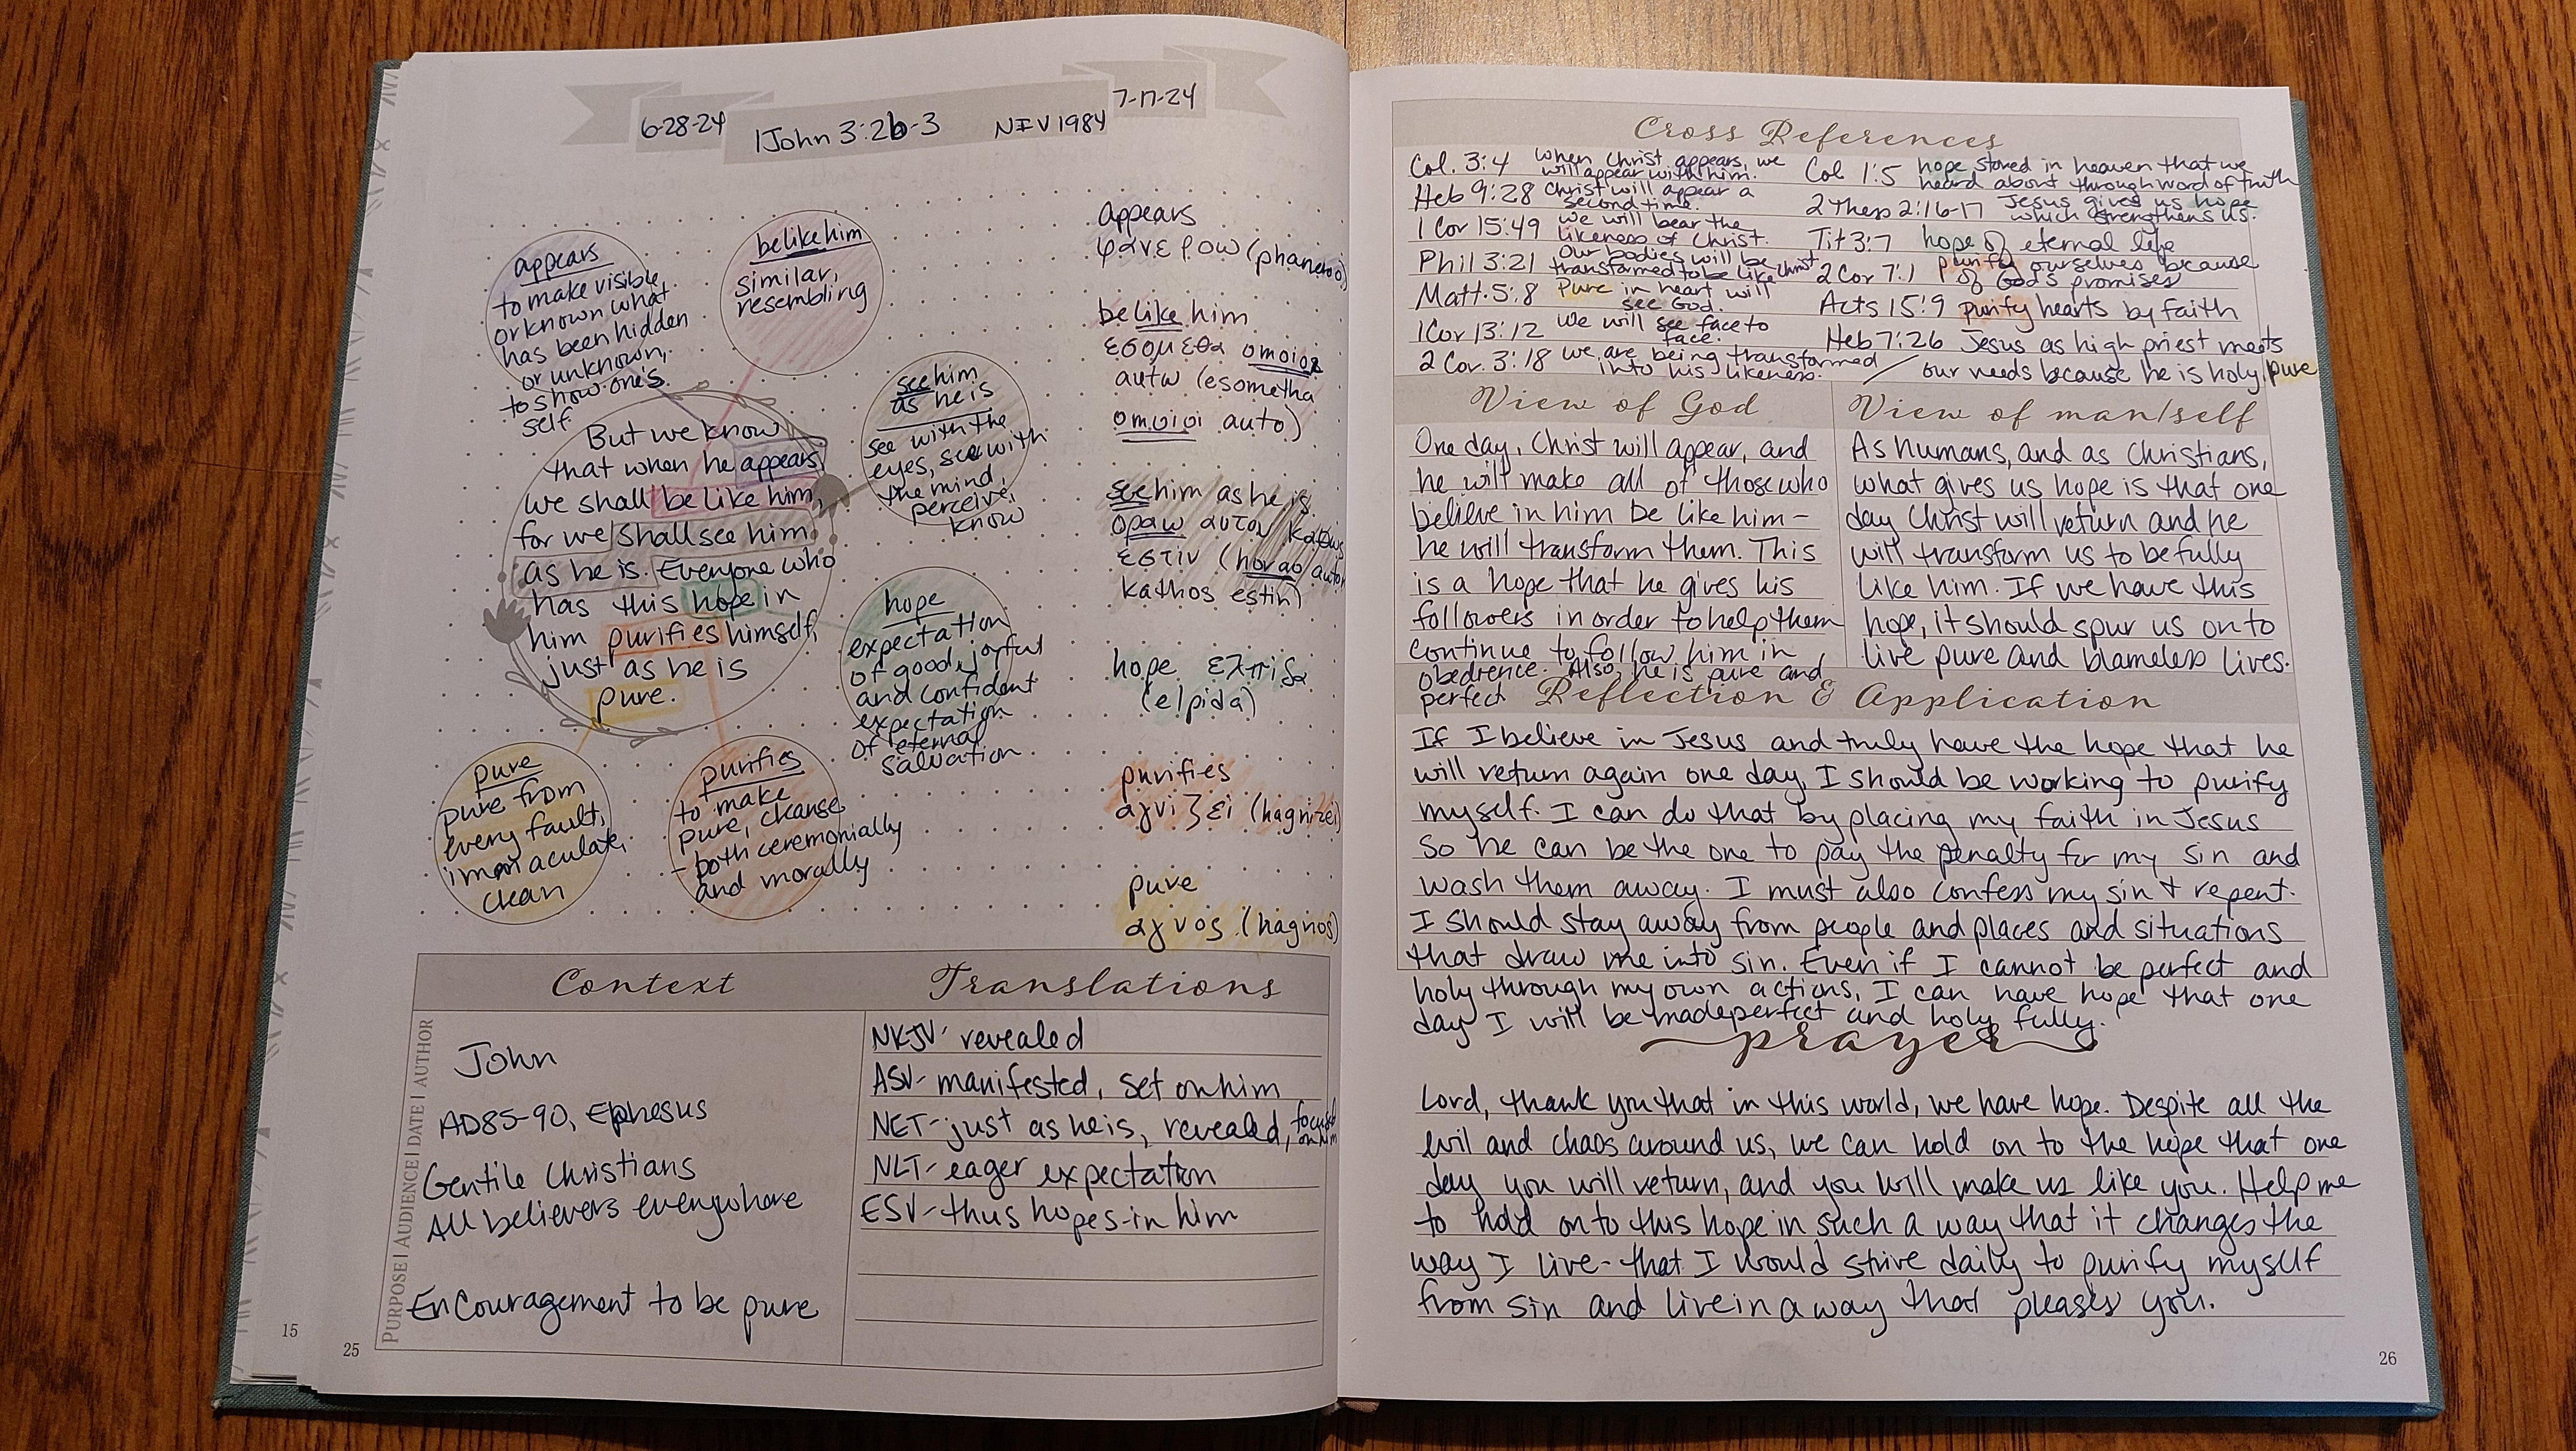 6-28-24
1John 3:2b-3
NIV 1984
7-17-24
appears
to make visible
or known what
has been hidden
or unknown,
to show one's
self
be like him
similar,
resembling
see him
as he is
see with the
eyes, see with
the mind,
perceive,
know
But we know
that when he appears,
we shall be like him,
for we shall see him
as he is. Everyone who
has this hope in
him purifies himself,
just as he is
pure.
hope
expectation
of good, joyful
and confident
expectation
of eternal
salvation
pure
pure from
every fault,
immaculate,
clean
purifies
to make
pure, cleanse
- both ceremonially
and morally
appears
φανεροω (phaneroo)
be like him
εσομεθα ομοιοι
αυτω (esometha
omoioi auto)
see him as he is
οραω αυτον καθως
εστιν (horao auton
kathos estin)
hope ελπιδα
(elpida)
purifies
αγνιζει (hagnizei)
pure
αγνος (hagnos)
Context
PURPOSE | AUDIENCE | DATE | AUTHOR
John
AD85-90, Ephesus
Gentile Christians
All believers everywhere
Encouragement to be pure
Translations
NKJV- revealed
ASV- manifested, set on him
NET- just as he is, revealed, focused on him
NLT- eager expectation
ESV- thus hopes in him
15
25
Cross References
Col. 3:4 When Christ appears, we
will appear with him.
Heb 9:28 Christ will appear a
second time.
1 Cor 15:49 we will bear the
likeness of Christ.
Phil 3:21 Our bodies will be
transformed to be like Christ
Matt. 5:8 Pure in heart will
see God.
1Cor 13:12 We will see face to
face.
2 Cor. 3:18 we are being transformed
into his likeness.
Col 1:5 hope stored in heaven that we
heard about through word of truth
2 Thess 2:16-17 Jesus gives us hope
which strengthens us.
Tit 3:7 hope of eternal life
2 Cor 7:1 purify ourselves because
of God's promises
Acts 15:9 purify hearts by faith
Heb 7:26 Jesus as high priest meets
our needs because he is holy, pure
View of God
One day, Christ will appear, and
he will make all of those who
believe in him be like him -
he will transform them. This
is a hope that he gives his
followers in order to help them
continue to follow him in
obedience. Also, he is pure and
perfect
View of man/self
As humans, and as Christians,
what gives us hope is that one
day Christ will return and he
will transform us to be fully
like him. If we have this
hope, it should spur us on to
live pure and blameless lives.
Reflection & Application
If I believe in Jesus and truly have the hope that he
will return again one day, I should be working to purify
myself. I can do that by placing my faith in Jesus
so he can be the one to pay the penalty for my sin and
wash them away. I must also confess my sin & repent.
I should stay away from people and places and situations
that draw me into sin. Even if I cannot be perfect and
holy through my own actions, I can have hope that one
day I will be made perfect and holy fully.
prayer
Lord, thank you that in this world, we have hope. Despite all the
evil and chaos around us, we can hold on to the hope that one
day you will return, and you will make us like you. Help me
to hold on to this hope in such a way that it changes the
way I live- that I would strive daily to purify myself
from sin and live in a way that pleases you.
26